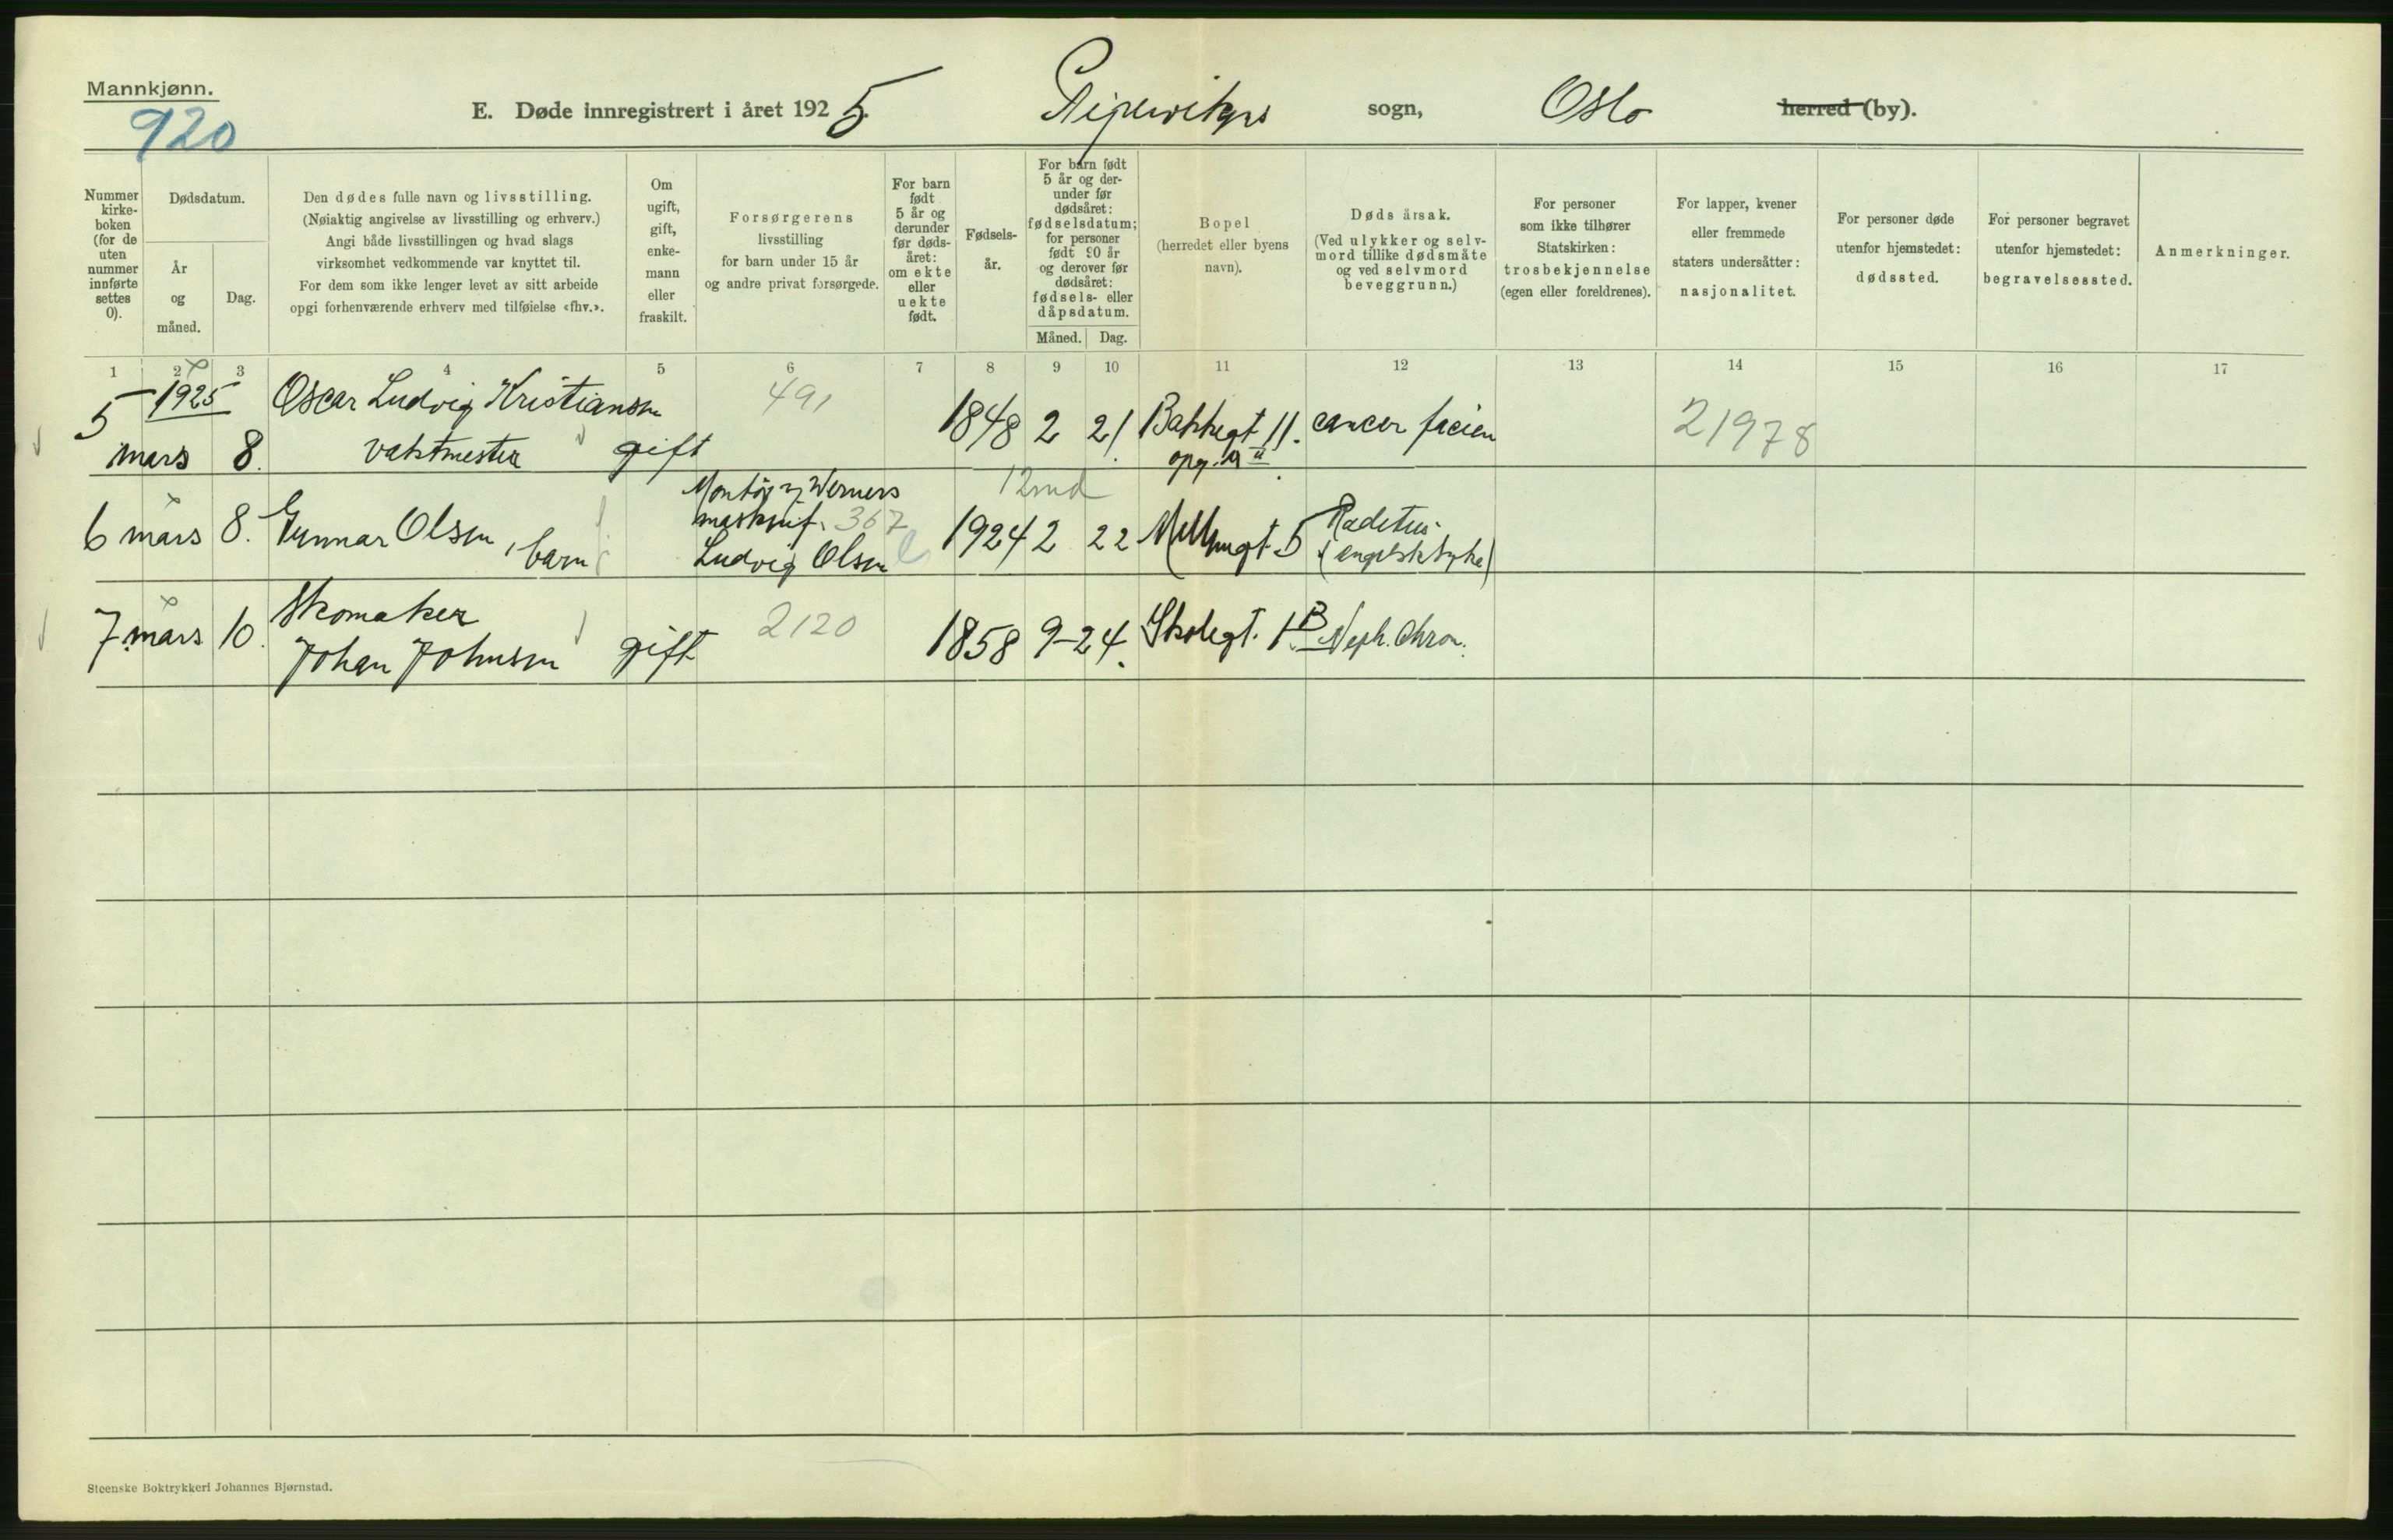 Mannkjønn.
920
E. Døde innregistrert i året 1925. Pipervikens sogn, Oslo herred (by).
Nummer kirke-
boken
(for de
uten
nummer
innførte
settes
0).
Dødsdatum.
År
og
måned.
Dag.
Den dødes fulle navn og livsstilling.
(Nøiaktig angivelse av livsstilling og erhverv.)
Angi både livsstillingen og hvad slags
virksomhet vedkommende var knyttet til.
For dem som ikke lenger levet av sitt arbeide
opgi forhenværende erhverv med tilføielse «fhv.».
Om
ugift,
gift,
enke-
mann
eller
fraskilt.
Forsørgerens
livsstilling
for barn under 15 år
og andre privat forsørgede.
For barn
født
5 år og
derunder
før døds-
året:
om ekte
eller
uekte
født.
Fødsels-
år.
For barn født
5 år og der-
under før
dødsåret:
fødselsdatum;
for personer
født 90 år
og derover før
dødsåret:
fødsels- eller
dåpsdatum.
Måned. Dag.
Bopel
(herredet eller byens
navn).
Dødsårsak.
(Ved ulykker og selv-
mord tillike dødsmåte
og ved selvmord
beveggrunn.)
For personer
som ikke tilhører
Statskirken:
trosbekjennelse
(egen eller foreldrenes).
For lapper, kvener
eller fremmede
staters undersåtter:
nasjonalitet.
For personer døde
utenfor hjemstedet:
dødssted.
For personer begravet
utenfor hjemstedet:
begravelsessted.
Anmerkninger.
1 2 3 4 5 6 7 8 9 10 11 12 13 14 15 16 17
5 1925 Oscar Ludvig Kristiansen 491 1848 2 21. Bakkegt 11. cancer faciei 21978
mars 8. vaktmester gift opg. a II
Montør v/ Werners 12 md
maskinf. 367
6 mars 8. Gunnar Olsen, barn Ludvig Olsen 1924 2 22 Møllergt 5 Racitis
(engelsk syke)
7 mars 10. Skomaker
Johan Johnsen gift 2120 1858 9-24. Skolegt. 1B Neph. Chron.
Steenske Boktrykkeri Johannes Bjørnstad.